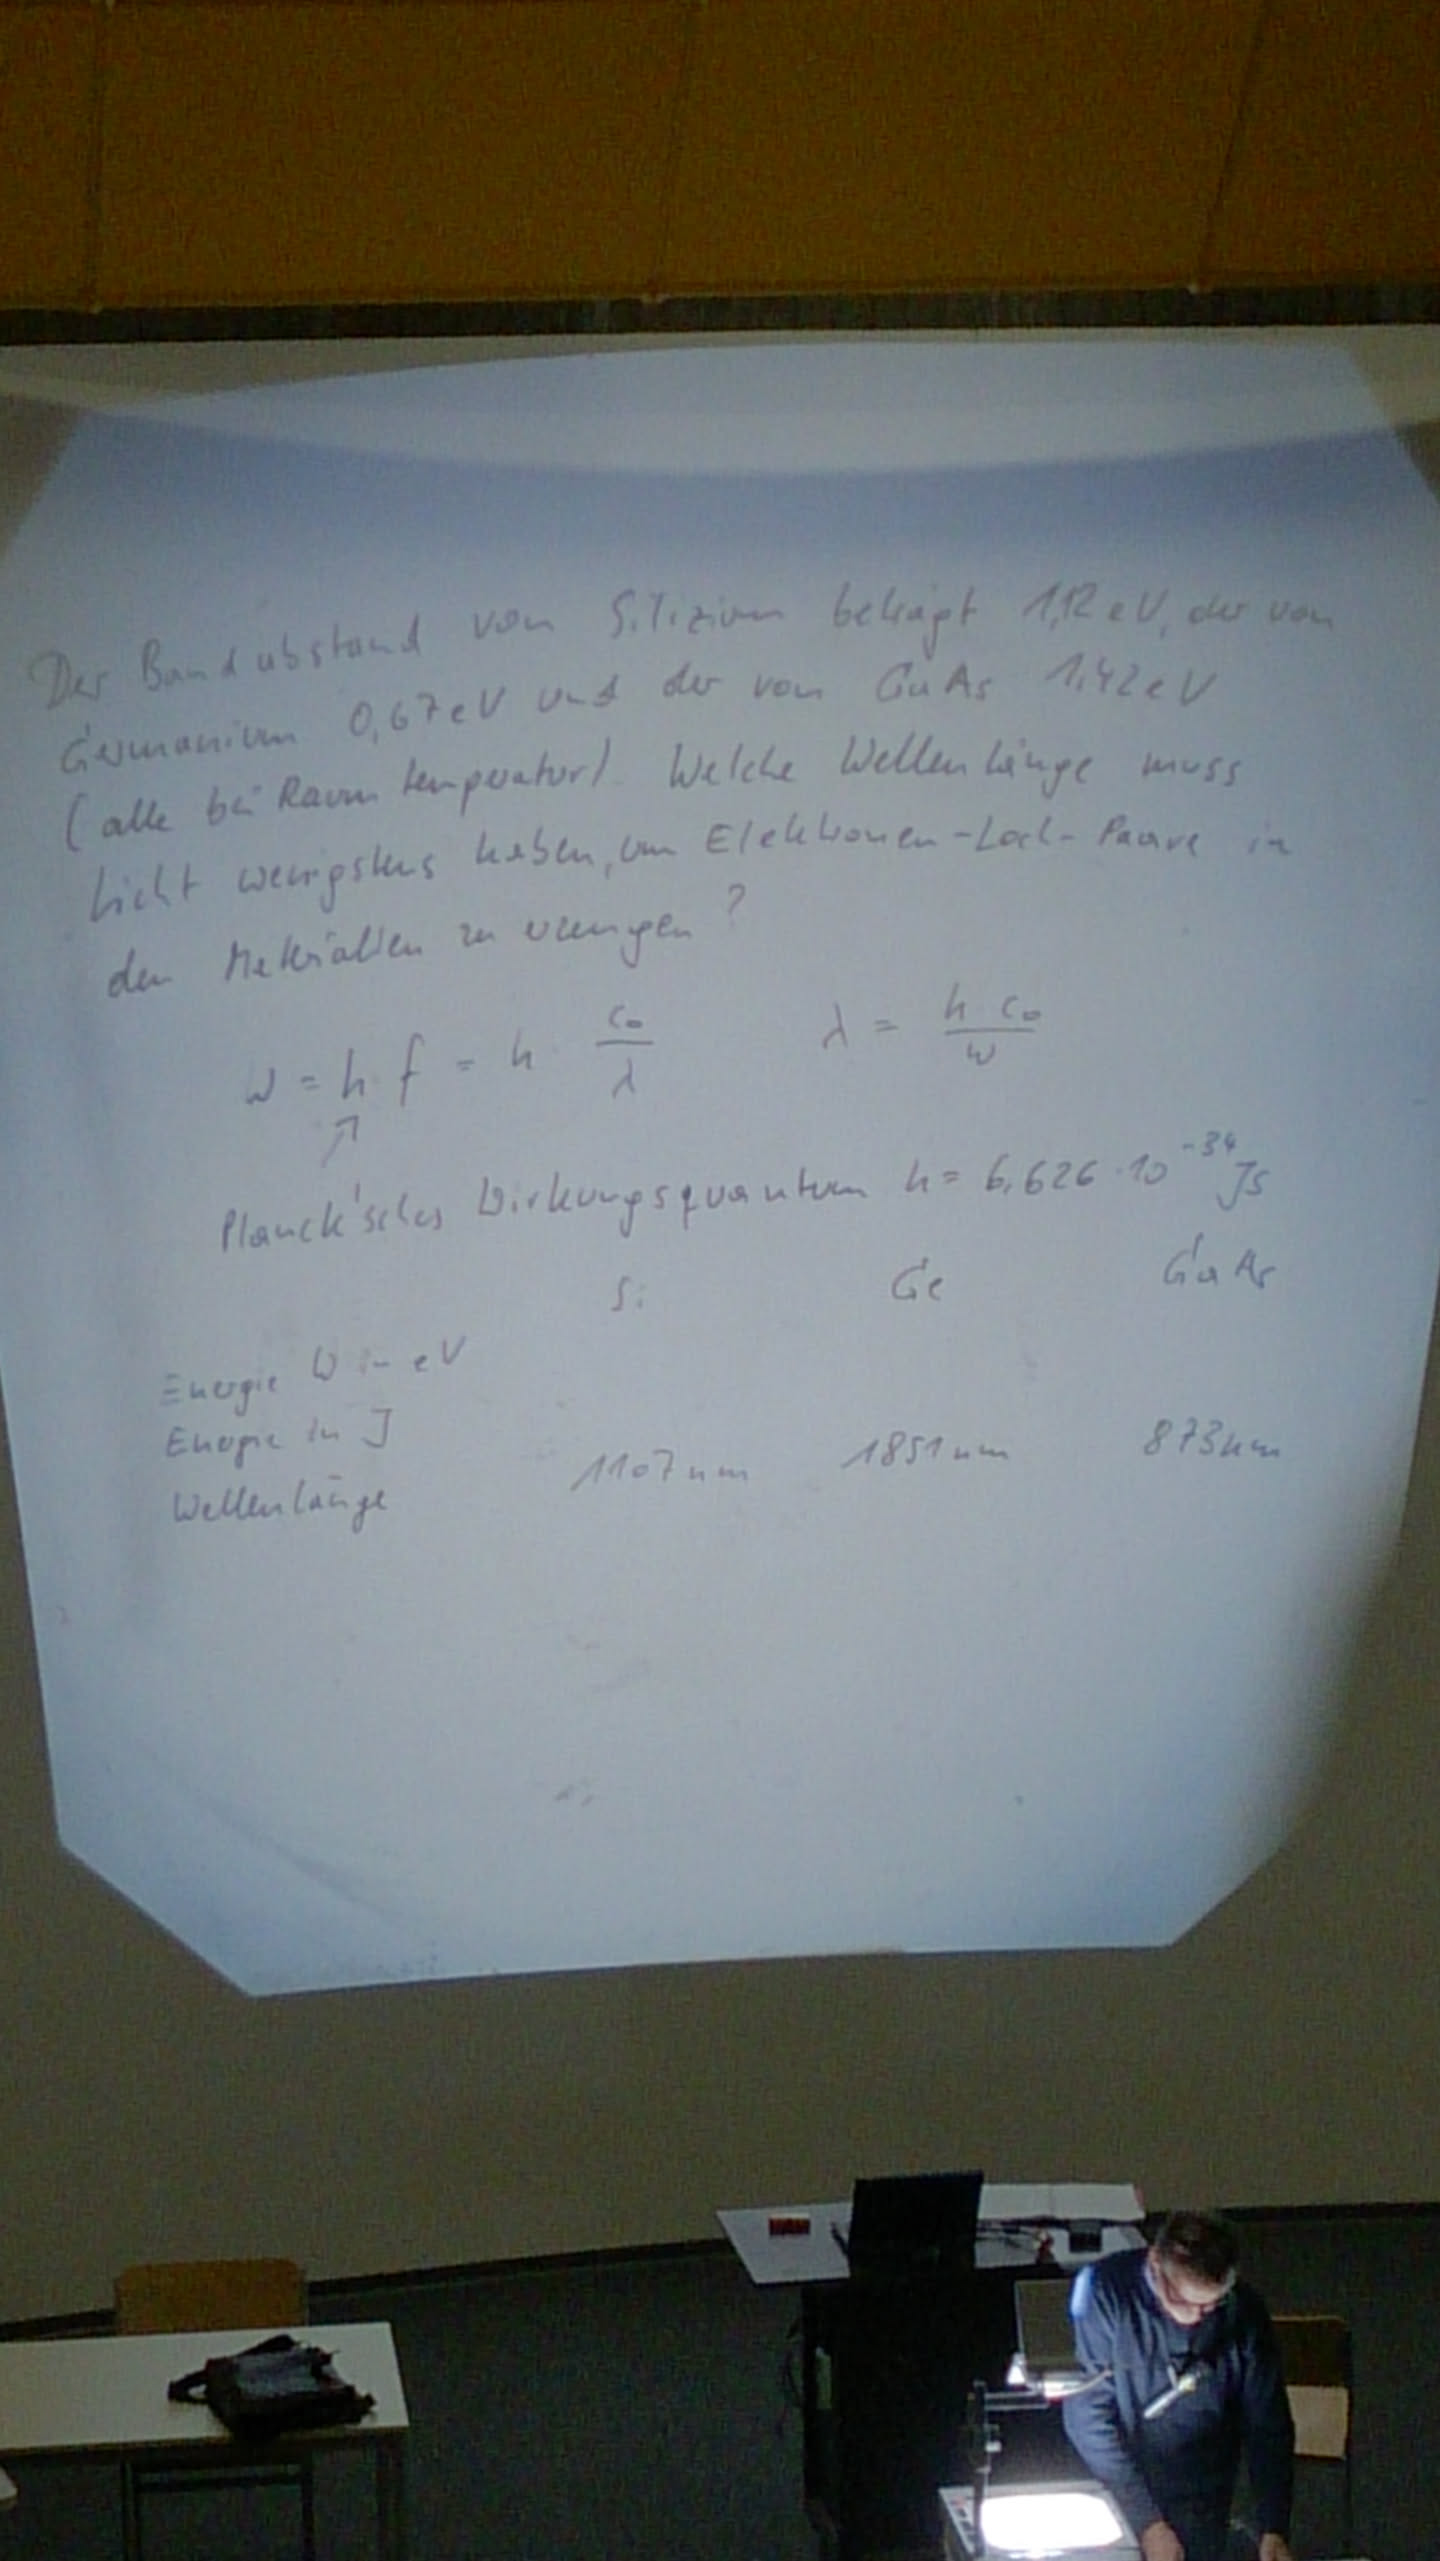 Der Bandabstand von Silizium beträgt 1,12 eV, der von
Germanium 0,67 eV und der von GaAs 1,42 eV
(alle bei Raumtemperatur). Welche Wellenlänge muss
Licht wenigstens haben, um Elektronen-Loch-Paare in
den Materialien zu erzeugen?
W = h · f = h · c₀/λ λ = h · c₀/W
↗
Planck'sches Wirkungsquantum h = 6,626 · 10⁻³⁴ Js
Si Ge GaAs
Energie W in eV
Energie in J
Wellenlänge 1107 nm 1851 nm 873 nm